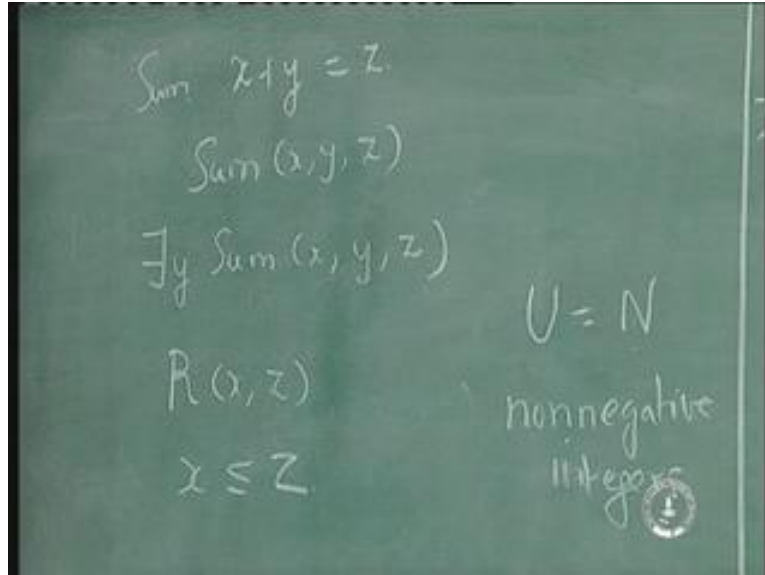 Sum x+y = z.
Sum (x, y, z)
∃y Sum (x, y, z)
R(x, z)
x ≤ z.
U = N
nonnegative
integers